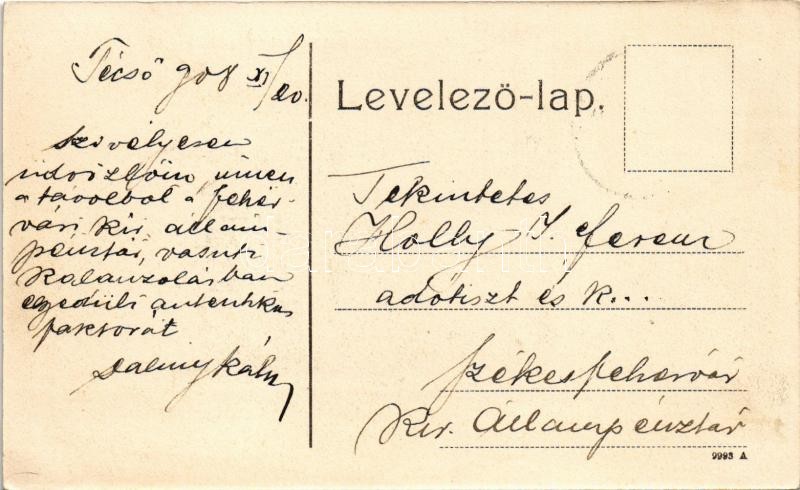 Técső 908 XI/20.
Szivélyesen
üdvözlöm, innen
a távolból a fehér-
vári kir. állam-
pénztár, vasuti
kalauzolásban
egyedüli autentikus
faktorát
Levelező-lap.
Tekintetes
Holly J. Ferenc
adótiszt és k...
Székesfehérvár
Kir. Állampénztár
9993 A